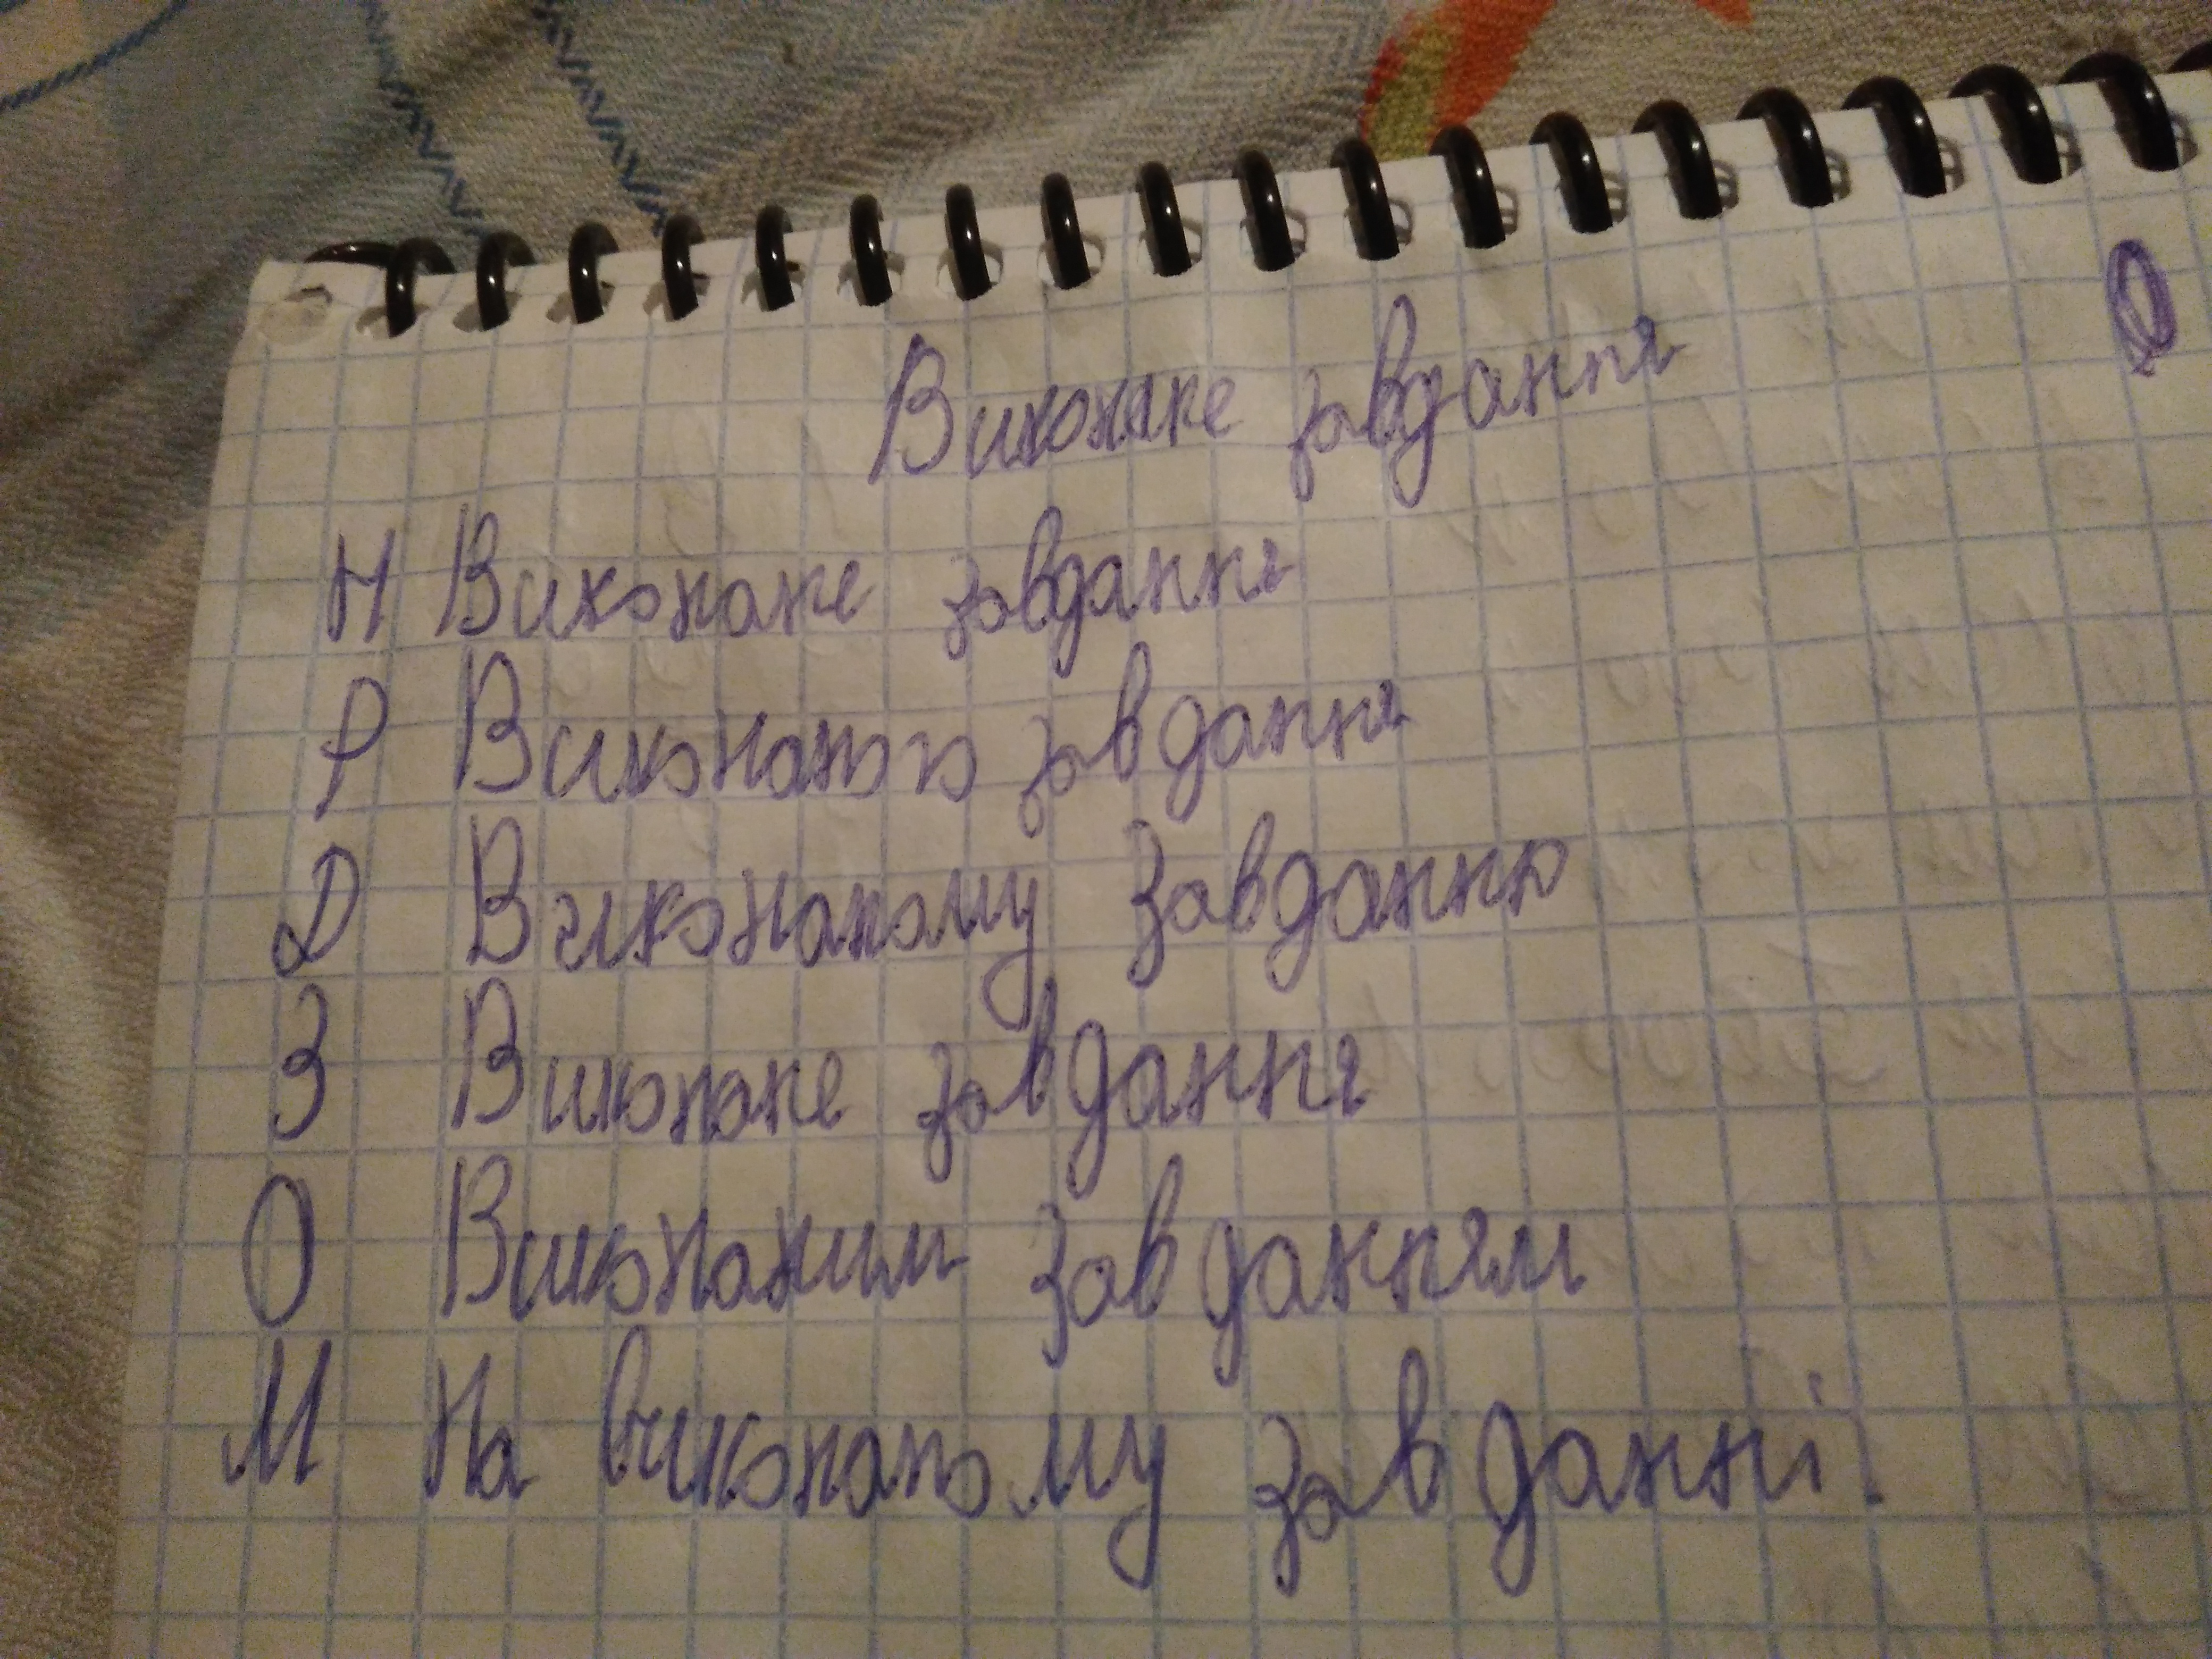 Виконане завдання
Н Виконане завдання
Р Виконаного завдання
Д Виконаному завданню
З Виконане завдання
О Виконаним завданням
М На виконаному завданні.